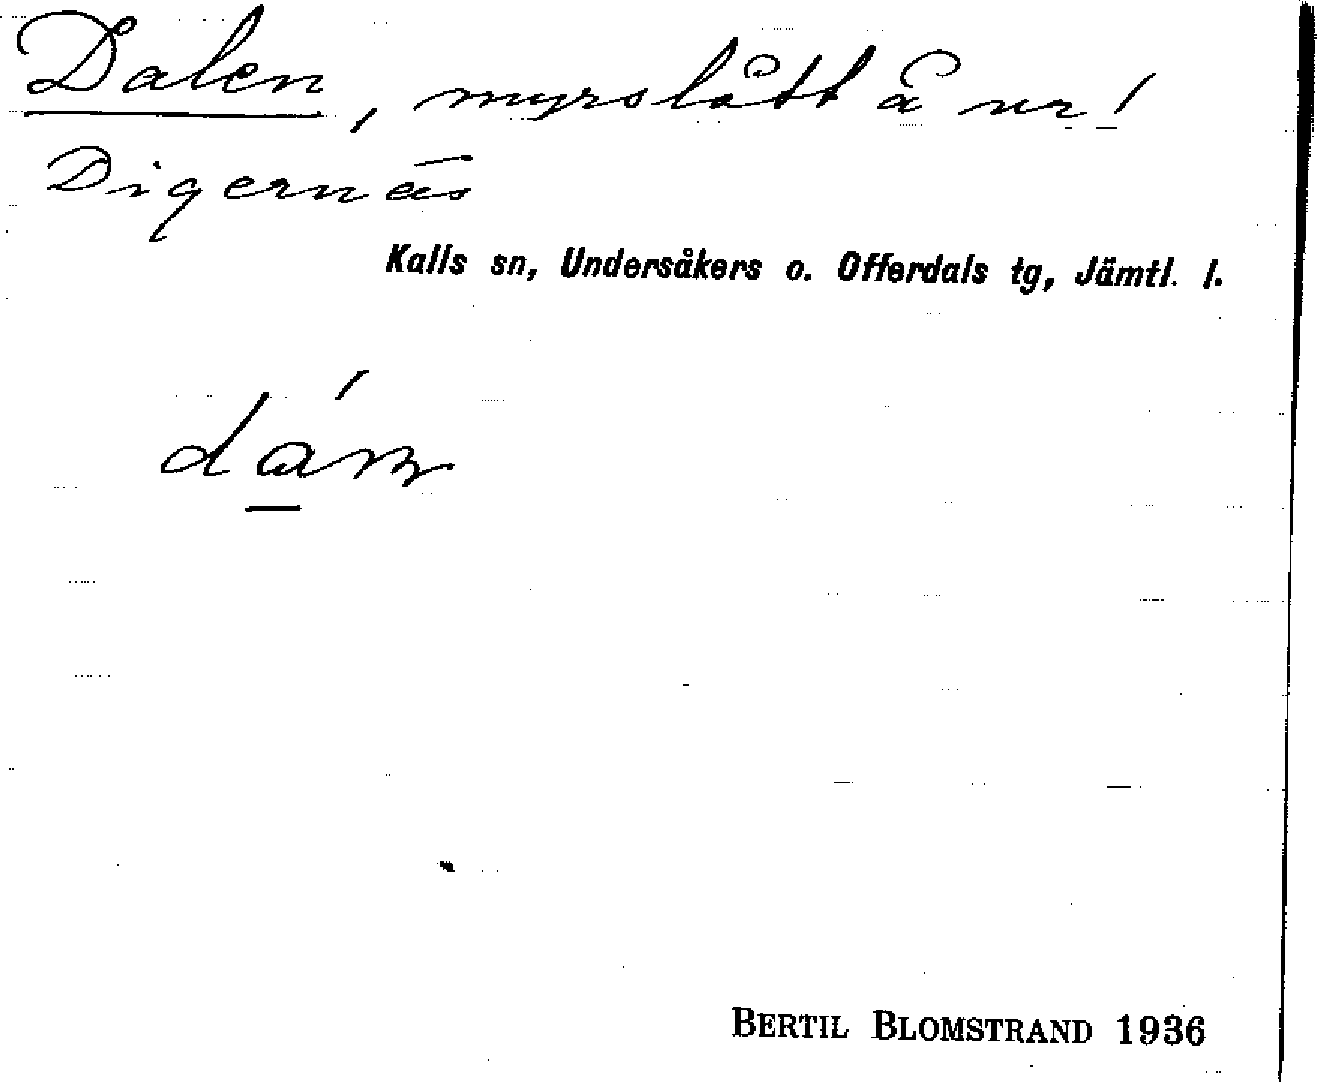 Dalen, myrslått å nr 1
Digernäs
Kalls sn, Undersåkers o. Offerdals tg, Jämtl. l.
BERTIL BLOMSTRAND 1936